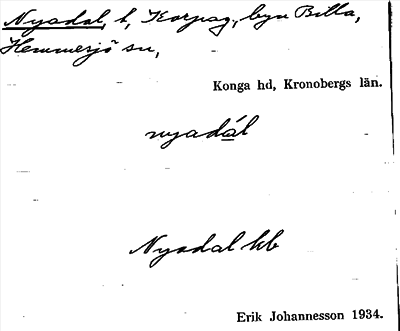 Nyadal, t, Torpag, byn Billa,
Hemmesjö sn,
Konga hd, Kronobergs län.
nyadál
Nyadal hb
Erik Johannesson 1934.